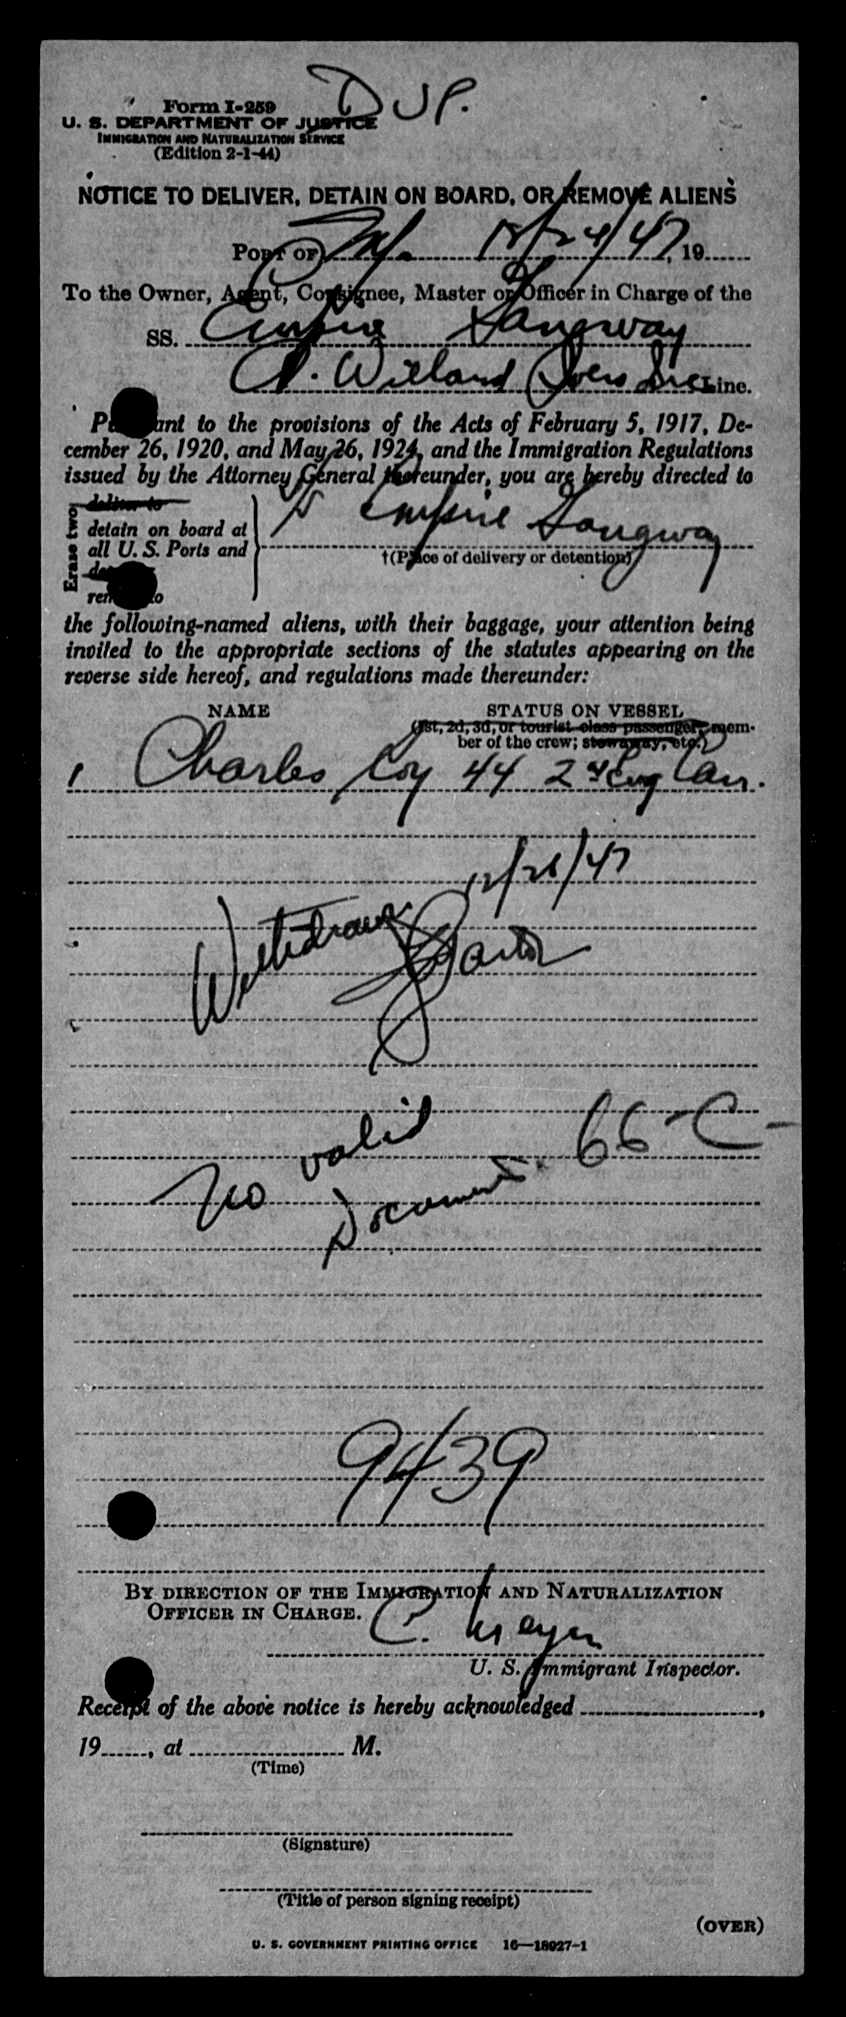 DUP.
Form I-259
U. S. DEPARTMENT OF JUSTICE
IMMIGRATION AND NATURALIZATION SERVICE
(Edition 2-1-44)
NOTICE TO DELIVER, DETAIN ON BOARD, OR REMOVE ALIENS
PORT OF N.Y. 12/24/47, 19
To the Owner, Agent, Consignee, Master or Officer in Charge of the
SS. Empire Gangway
Willand Line.
Pursuant to the provisions of the Acts of February 5, 1917, De-
cember 26, 1920, and May 26, 1924, and the Immigration Regulations
issued by the Attorney General thereunder, you are hereby directed to
Erase two
deliver to
detain on board at
all U. S. Ports and
remove to
Empire Gangway
†(Place of delivery or detention)
the following-named aliens, with their baggage, your attention being
invited to the appropriate sections of the statutes appearing on the
reverse side hereof, and regulations made thereunder:
NAME STATUS ON VESSEL
(1st, 2d, 3d, or tourist class passenger; mem-
ber of the crew; stowaway, etc.)
1 Charles Coy 44 2nd Eng Can.
12/26/47
Withdrawn
No valid
Document 66-C-
9439
BY DIRECTION OF THE IMMIGRATION AND NATURALIZATION
OFFICER IN CHARGE.
C. Meyer
U. S. Immigrant Inspector.
Receipt of the above notice is hereby acknowledged ,
19 , at M.
(Time)
(Signature)
(Title of person signing receipt)
(OVER)
U. S. GOVERNMENT PRINTING OFFICE 16—18027-1